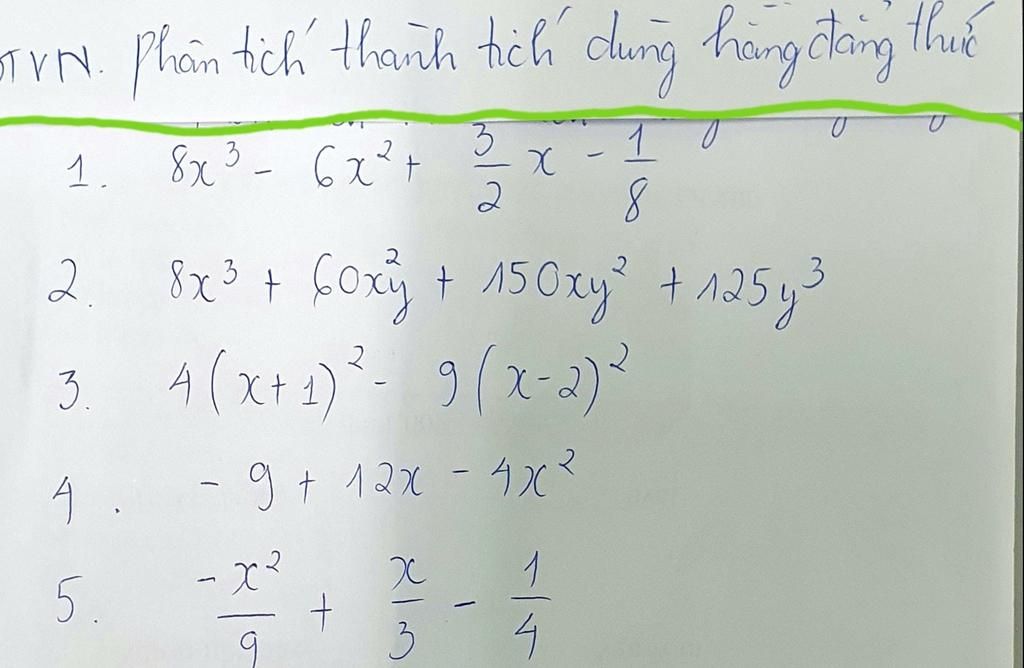 BTVN. Phân tích thành tích dùng hằng đẳng thức
1. 8x³ - 6x² + 3/2 x - 1/8
2. 8x³ + 60x²y + 150xy² + 125y³
3. 4(x+1)² - 9(x-2)²
4. -9 + 12x - 4x²
5. -x²/9 + x/3 - 1/4